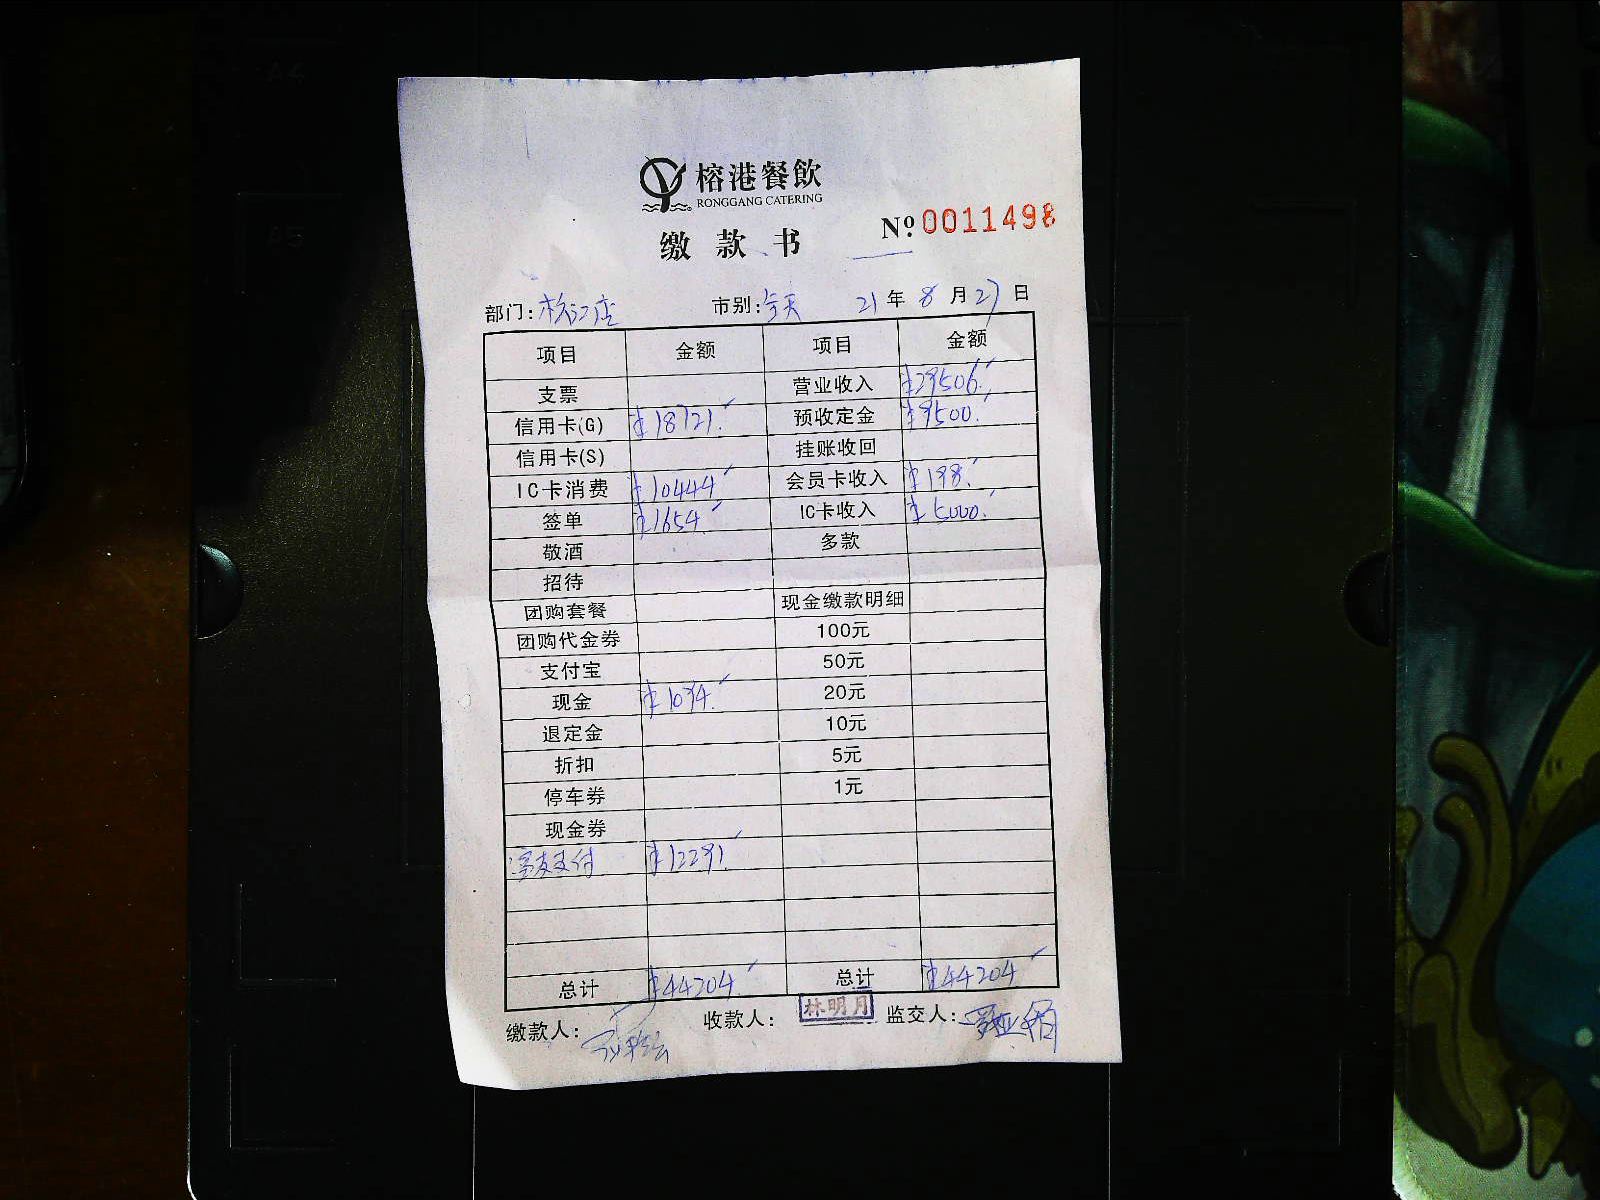 A4
A5
榕港餐飲
RONGGANG CATERING
缴款书
№ 0011498
部门: 市别:全天 21年8月27日
项目 金额 项目 金额
支票 营业收入 ¥29506.
信用卡(G) ¥18721. 预收定金 ¥9500.
信用卡(S) 挂账收回
IC卡消费 ¥10444 会员卡收入 ¥198.
签单 ¥1654 IC卡收入 ¥5000.
敬酒 多款
招待
团购套餐 现金缴款明细
团购代金券 100元
支付宝 50元
现金 ¥1094. 20元
退定金 10元
折扣 5元
停车券 1元
现金券
支付 ¥12291.
总计 ¥44204 总计 ¥44204
缴款人: 收款人: 林明月 监交人: